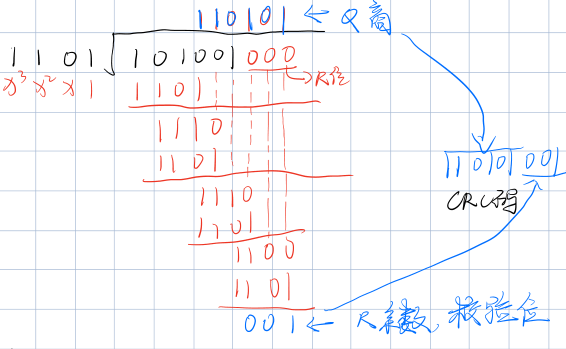 110101 ← Q商
1101 101001000
x³ x² x 1 1101 →R位
1110
1101
1110
1101
1100
1101
001 ← R余数,校验位
110101001
CRC码